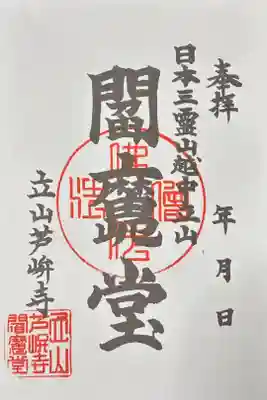 奉拝 年月日
日本三霊山越中立山
閻魔堂
佛法僧寶
立山芦峅寺
立山
芦峅寺
閻魔堂